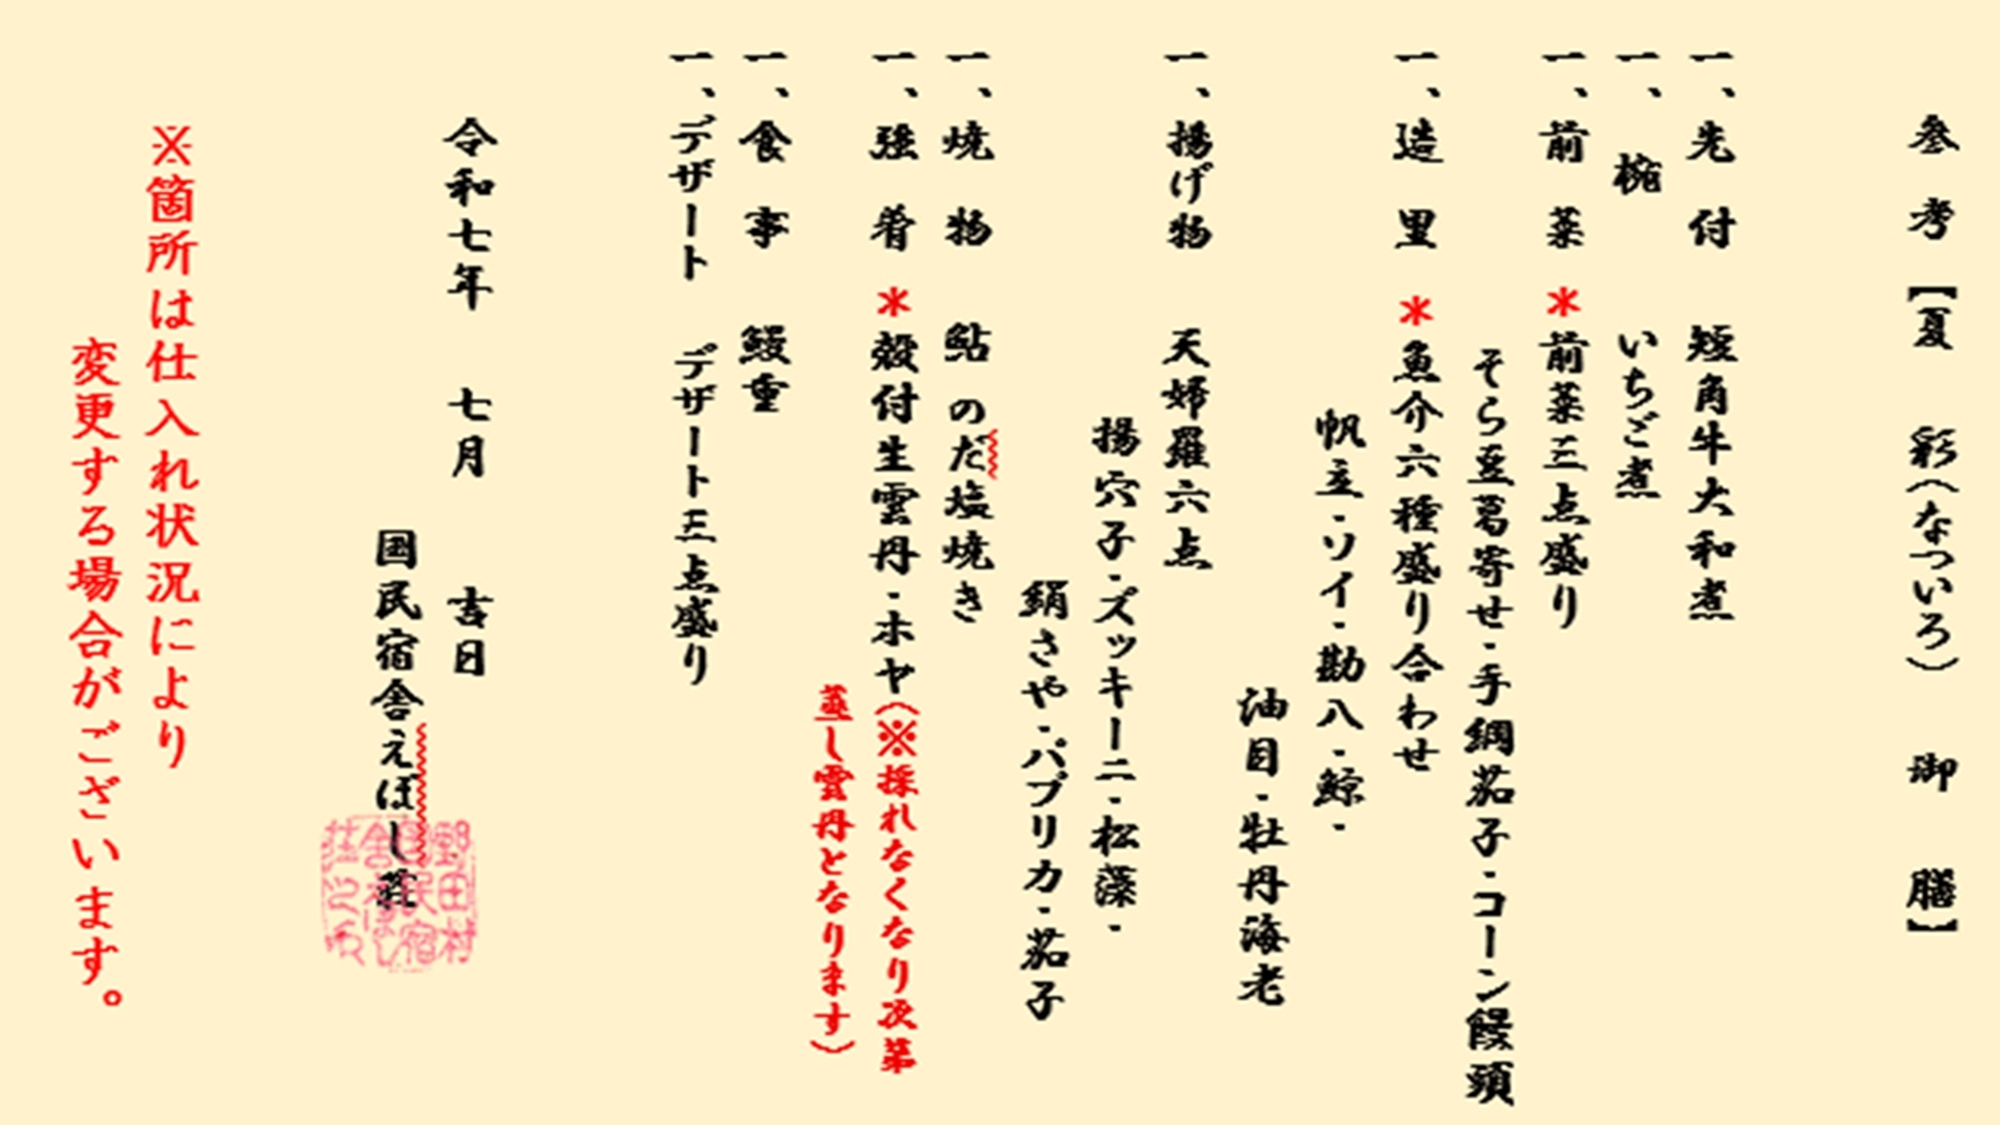 参考【夏 彩(なついろ) 御膳】
一、先付 短角牛大和煮
一、椀 いちご煮
一、前菜 *前菜三点盛り
そら豆葛寄せ・手綱茄子・コーン饅頭
一、造里 *魚介六種盛り合わせ
帆立・ソイ・勘八・鯨・
油目・牡丹海老
一、揚げ物 天婦羅六点
揚穴子・ズッキーニ・松藻・
絹さや・パプリカ・茄子
一、焼物 鮎のだ塩焼き
一、強肴 *殻付生雲丹・ホヤ(※採れなくなり次第
蒸し雲丹となります)
一、食事 鰻重
一、デザート デザート三点盛り
令和七年 七月 吉日
国民宿舎えぼし荘
野田村
国民宿
舎えぼし
荘之印
※箇所は仕入れ状況により
変更する場合がございます。